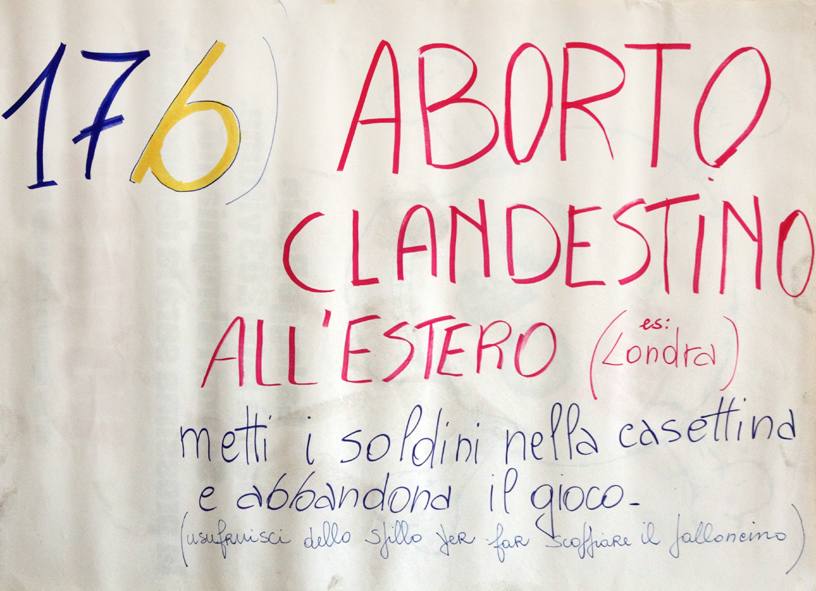 176) ABORTO
CLANDESTINO
ALL'ESTERO (es: Londra)
metti i soldini nella casettina
e abbandona il gioco-
(usufruisci dello spillo per far scoppiare il palloncino)